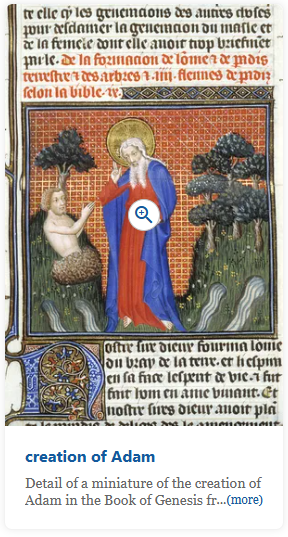 te elle q̃ les generacions des autres choses
pour desclairer la generacion du masle et
de la femele dont elle auoit trop briefment
parle. De la formacion de lōme ⁊ de padis
terrestre ⁊ des arbres ⁊ .iiij. fleuues de padis
selon la bible .xv.
ostre sire dieux fourma lōme
du bray de la terre. et li espira
en sa face lespirit de vie. ⁊ fait
fait hom en ame viuant. Et
nostre sires dieux auoit plā
creation of Adam
Detail of a miniature of the creation of
Adam in the Book of Genesis fr...(more)